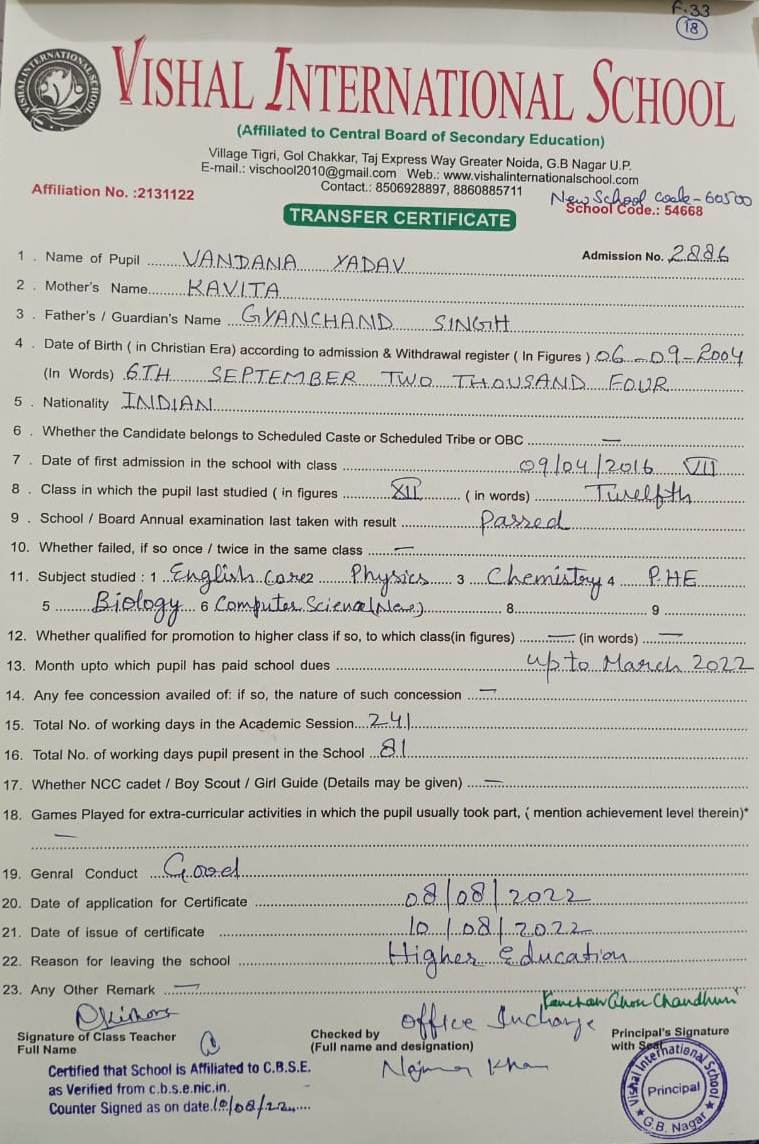 F.33
18
VISHAL INTERNATIONAL SCHOOL
VISHAL INTERNATIONAL SCHOOL
(Affiliated to Central Board of Secondary Education)
Village Tigri, Gol Chakkar, Taj Express Way Greater Noida, G.B Nagar U.P.
E-mail.: vischool2010@gmail.com Web.: www.vishalinternationalschool.com
Contact.: 8506928897, 8860885711
New School code-60500
Affiliation No. :2131122 School Code.: 54668
TRANSFER CERTIFICATE
1 . Name of Pupil VANDANA YADAV Admission No. 2886
2 . Mother's Name KAVITA
3 . Father's / Guardian's Name GYANCHAND SINGH
4 . Date of Birth ( in Christian Era) according to admission & Withdrawal register ( In Figures ) 06-09-2004
(In Words) 6TH SEPTEMBER TWO THOUSAND FOUR
5 . Nationality INDIAN
6 . Whether the Candidate belongs to Scheduled Caste or Scheduled Tribe or OBC —
7 . Date of first admission in the school with class 09/04/2016 VII
8 . Class in which the pupil last studied ( in figures XII ( in words) Twelfth
9 . School / Board Annual examination last taken with result Passed
10. Whether failed, if so once / twice in the same class —
11. Subject studied : 1 English Core 2 Physics 3 Chemistry 4 P.HE
5 Biology 6 Computer Science(New) 8 9
12. Whether qualified for promotion to higher class if so, to which class(in figures) — (in words) —
13. Month upto which pupil has paid school dues up to March 2022
14. Any fee concession availed of: if so, the nature of such concession —
15. Total No. of working days in the Academic Session 241
16. Total No. of working days pupil present in the School 81
17. Whether NCC cadet / Boy Scout / Girl Guide (Details may be given) —
18. Games Played for extra-curricular activities in which the pupil usually took part, ( mention achievement level therein)*
—
19. Genral Conduct Good
20. Date of application for Certificate 08/08/2022
21. Date of issue of certificate 10/08/2022
22. Reason for leaving the school Higher Education
23. Any Other Remark —
Kanchan Ghon Chandhuri
Office Incharge
Signature of Class Teacher Checked by Principal's Signature
Full Name (Full name and designation) with Seal
Najma Khan
Certified that School is Affiliated to C.B.S.E.
as Verified from c.b.s.e.nic.in.
Counter Signed as on date 10/08/22
Vishal International School
Principal
G.B. Nagar